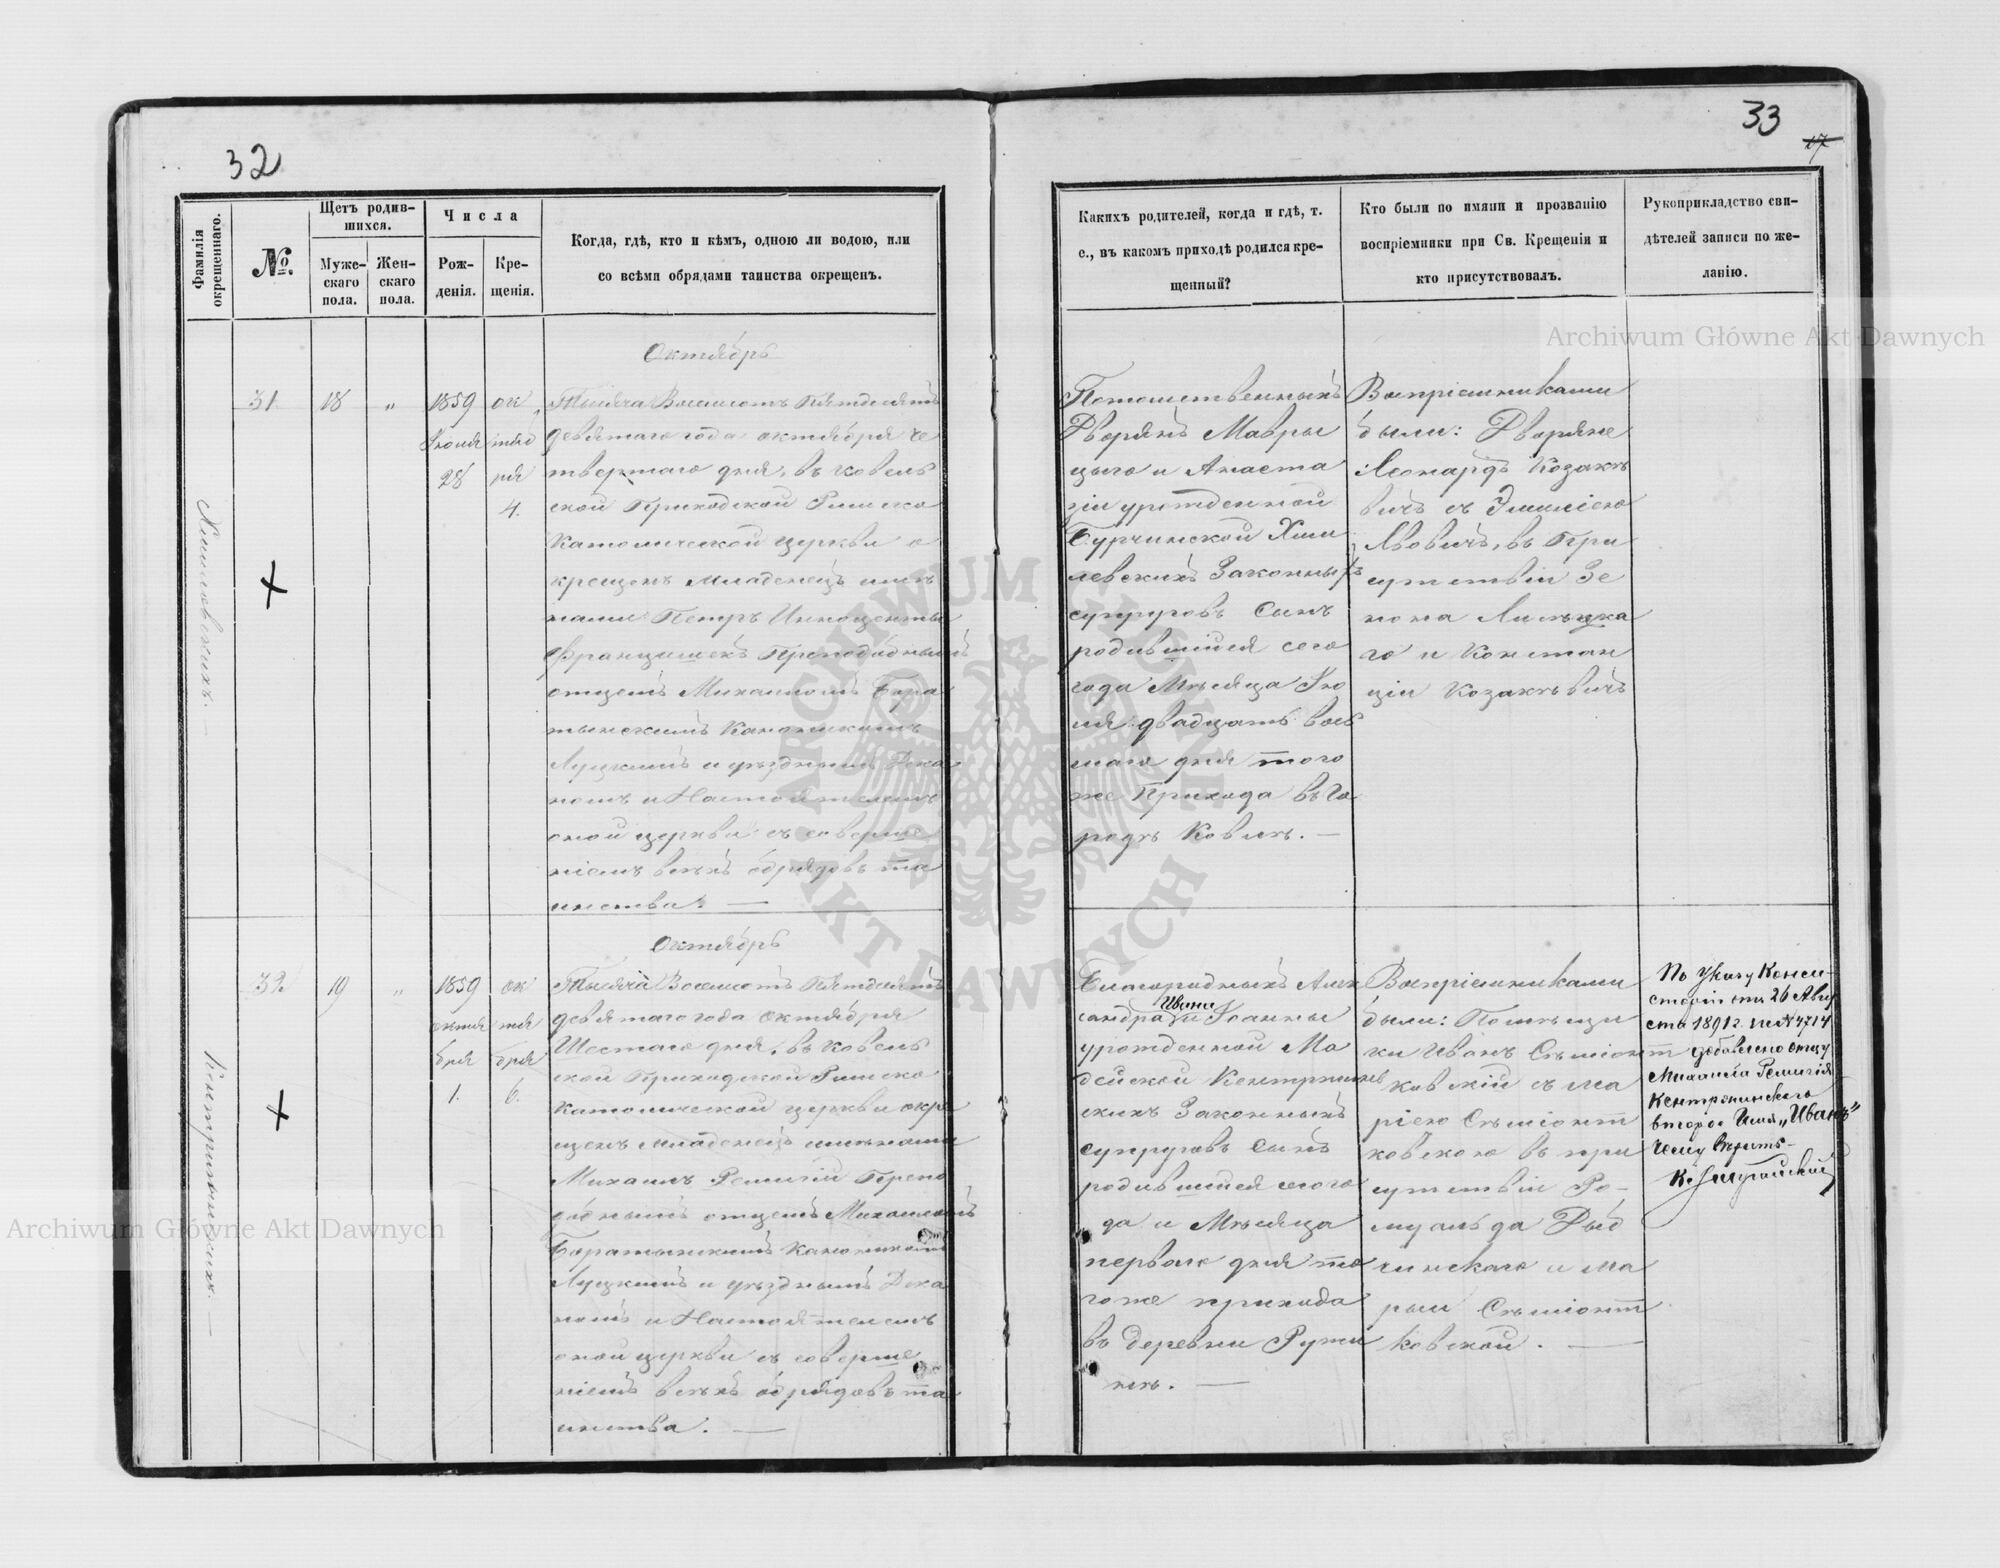 32
Фамилія
окрещеннаго.
№.
Щетъ родив-
шихся.
Муже-
скаго
пола.
Жен-
скаго
пола.
Числа
Рож-
денія.
Кре-
щенія.
Когда, гдѣ, кто и кѣмъ, одною ли водою, или
со всѣми обрядами таинства окрещенъ.
Хмилевскихъ. —
31
18
"
1859
Іюля
28
ок
тяб
ря
4.
Октябрь
Тысяча Восемсотъ Пятдесятъ
девятаго года октября че
твертаго дня, въ Ковель
ской Приходской Римско
Католической церкви о
крещенъ Младенецъ имѣ
нами Петръ Инноцентый
Францишекъ Преподобнымъ
отцемъ Михаиломъ Бора
тынскимъ Каноникомъ
Луцкимъ и уѣзднымъ Дека
номъ и Настоятелемъ
оной церкви съ соверше
ніемъ всѣхъ обрядовъ та
инства. —
Кентржинскихъ. —
32
19
"
1859
октя
бря
1.
ок
тя
бря
6.
Октябрь
Тысяча Восемсотъ Пятдесятъ
девятаго года Октября
Шестаго дня, въ Ковель
ской Приходской Римско
Католической церкви окре
щенъ Младенецъ имѣнами
Михаилъ Ремигій Препо
добнымъ отцемъ Михаиломъ
Боратынскимъ Каноникомъ
Луцкимъ и уѣзднымъ Дека
номъ и Настоятелемъ
оной церкви съ соверше
ніемъ всѣхъ обрядовъ та
инства. —
33
17
Какихъ родителей, когда и гдѣ, т.
е., въ какомъ приходѣ родился кре-
щенный?
Кто были по имяни и прозванію
воспріемники при Св. Крещеніи и
кто присутствовалъ.
Рукоприкладство сви-
дѣтелей записи по же-
ланію.
Потомственныхъ
Дворянъ Маври
цыго и Анаста
зіи урожденной
Бурчинской Хми
левскихъ Законныхъ
супруговъ Сынъ
родившійся сего
года Мѣсяца Ію
ля двадцать вось
маго дня того
же Прихода въ Го
родѣ Ковлѣ. —
Воспріемниками
были: Дворяне
Леонардъ Козакѣ
вичъ съ Эмиліею
Львовичъ, въ При
сутствіи Зе
нона
го и Констан
ціи Козакѣвичъ
Благородныхъ Алек
сандра Ивана и Іоанны
урожденной Ма
дейской Кентржин
скихъ Законныхъ
супруговъ Сынъ
родившійся сего го
да и Мѣсяца
перваго дня то
гоже прихода
въ деревни Ружи
нѣ. —
Воспріемниками
были: Помѣщи
ки Иванъ Сѣмионт
ковскій съ Ма
ріею Сѣмионт
ковскою въ при
сутствіи Ро-
муальда Рыб
чинскаго и Ма
рыи Сѣмионт
ковской. —
По Указу Конси-
сторіи отъ 26 Авгу
ста 1891 г. за № 4714
добавлено отцу
Михаила Ремигія
Кентржинскаго
второе Имя „Иванъ"
чему вѣрить -
Archiwum Główne Akt Dawnych
Archiwum Główne Akt Dawnych
ARCHIWUM GŁÓWNE AKT DAWNYCH